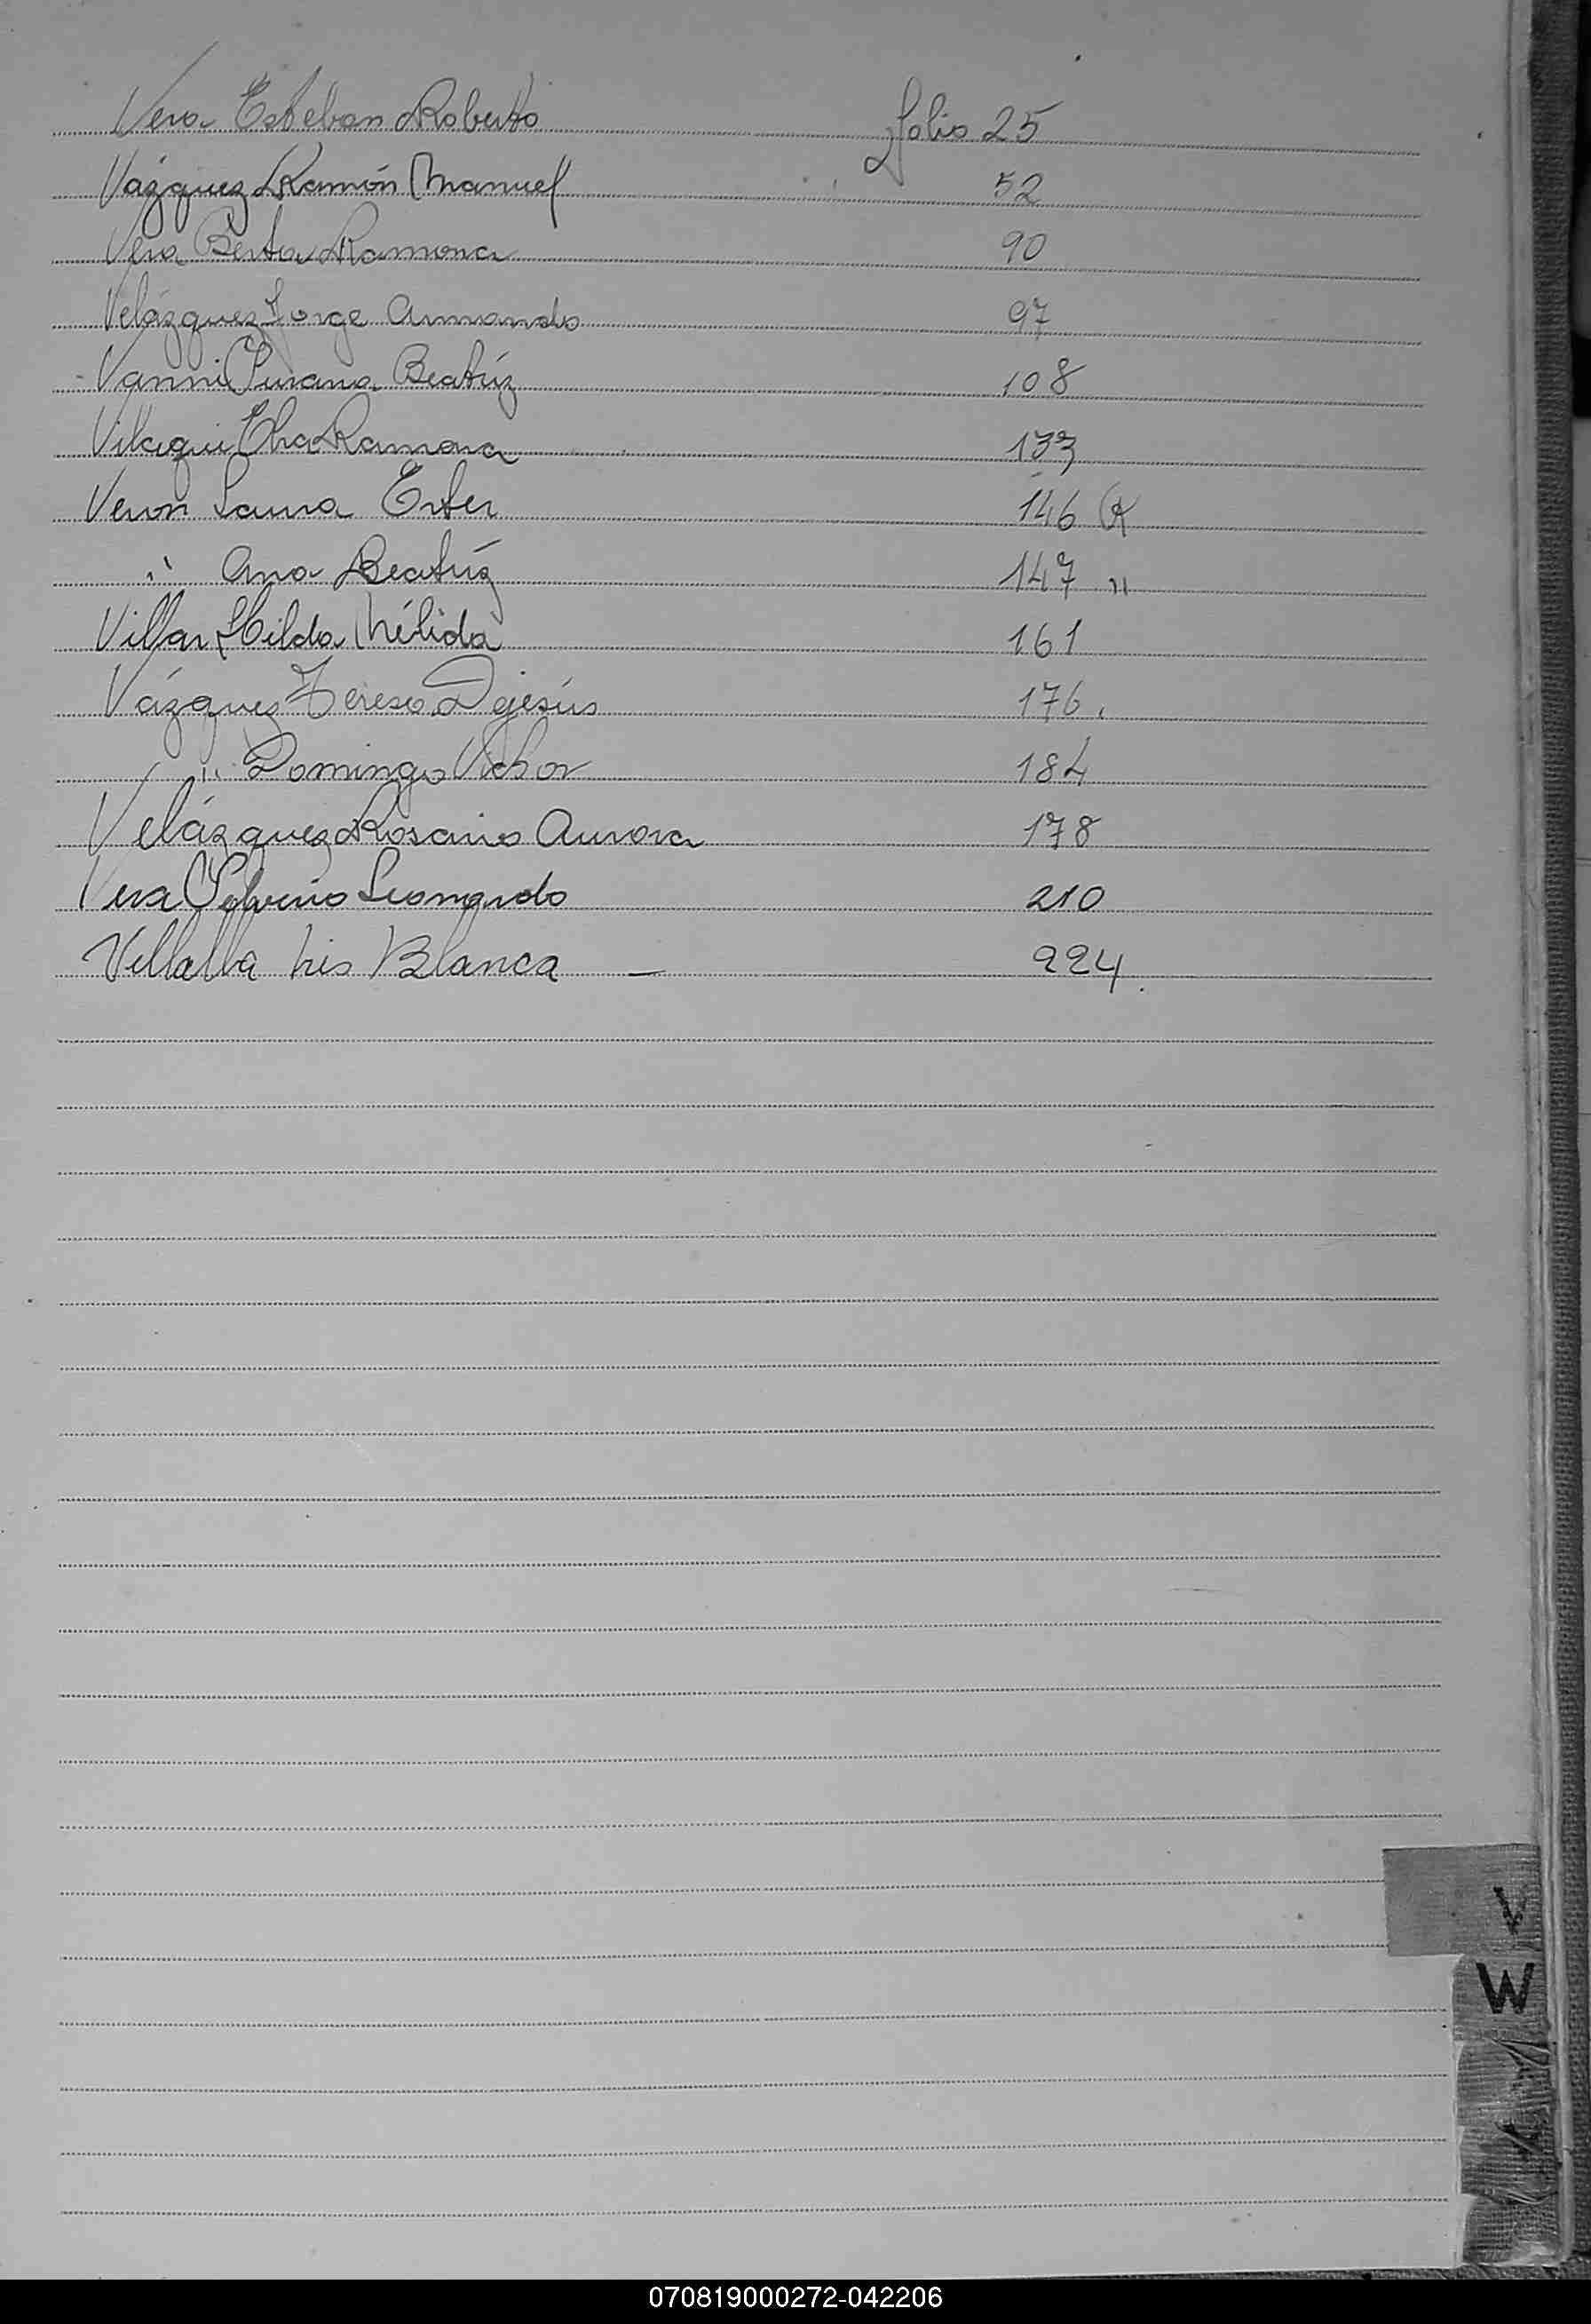 Vera Esteban Roberto folio 25
Vázquez Ramón Manuel 52
Vera Berta Ramona 90
Velázquez Jorge Armando 97
Vanni Susana Beatríz 108
Ramona 133
Veron Laura Ester 146 R
" Ana Beatríz 147 "
Villar Hilda Nélida 161
Vázquez Teresa D jesús 176.
" Domingo Victor 184
Velázquez Rosario Aurora 178
Vera Leonardo 210
Villalba Lis Blanca — 224.
V
W
070819000272-042206